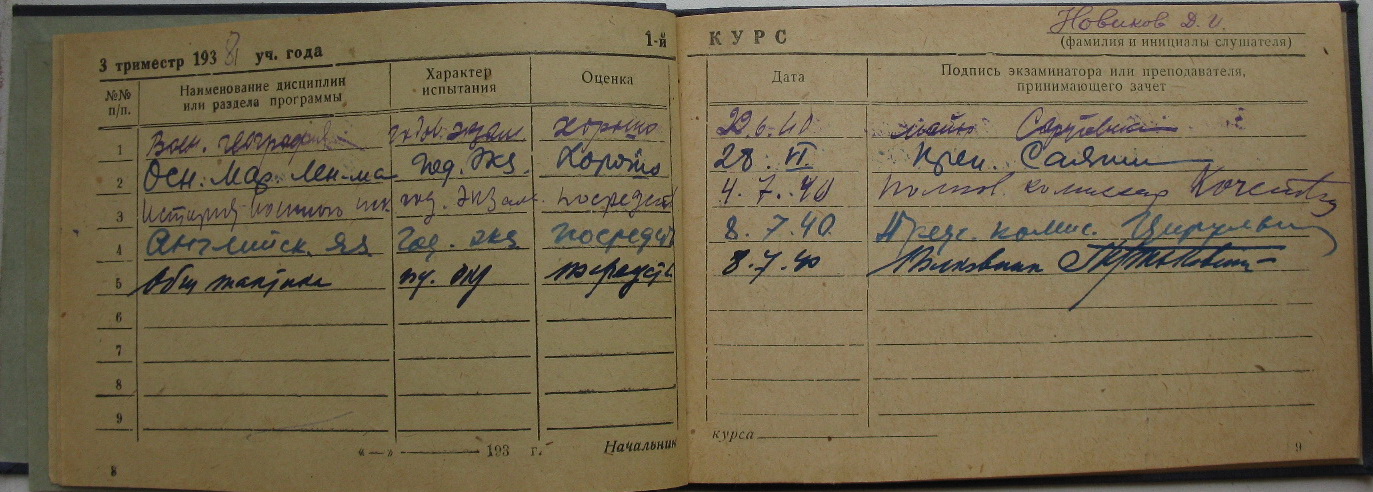 Новиков Д. И.
3 триместр 193 уч. года 1-й КУРС (фамилия и инициалы слушателя)
№№ п/п. Наименование дисциплин или раздела программы Характер испытания Оценка Дата Подпись экзаминатора или преподавателя, принимающего зачет
1 Воен. география годов. экзам. хорошо 22.6.40 майор
2 Осн. Мар. Лен-ма год. экз. Хорошо 28. VI преп.
3 История военного иск год. экзам. посредств 4.7.40 полков. комиссар
4 Английск. яз год. экз посредст 8.7.40.
5 Общ тактика экз посредств 8.7.40 Полковник
6
7
8
9
« — » 193 г. Начальник курса
8 9